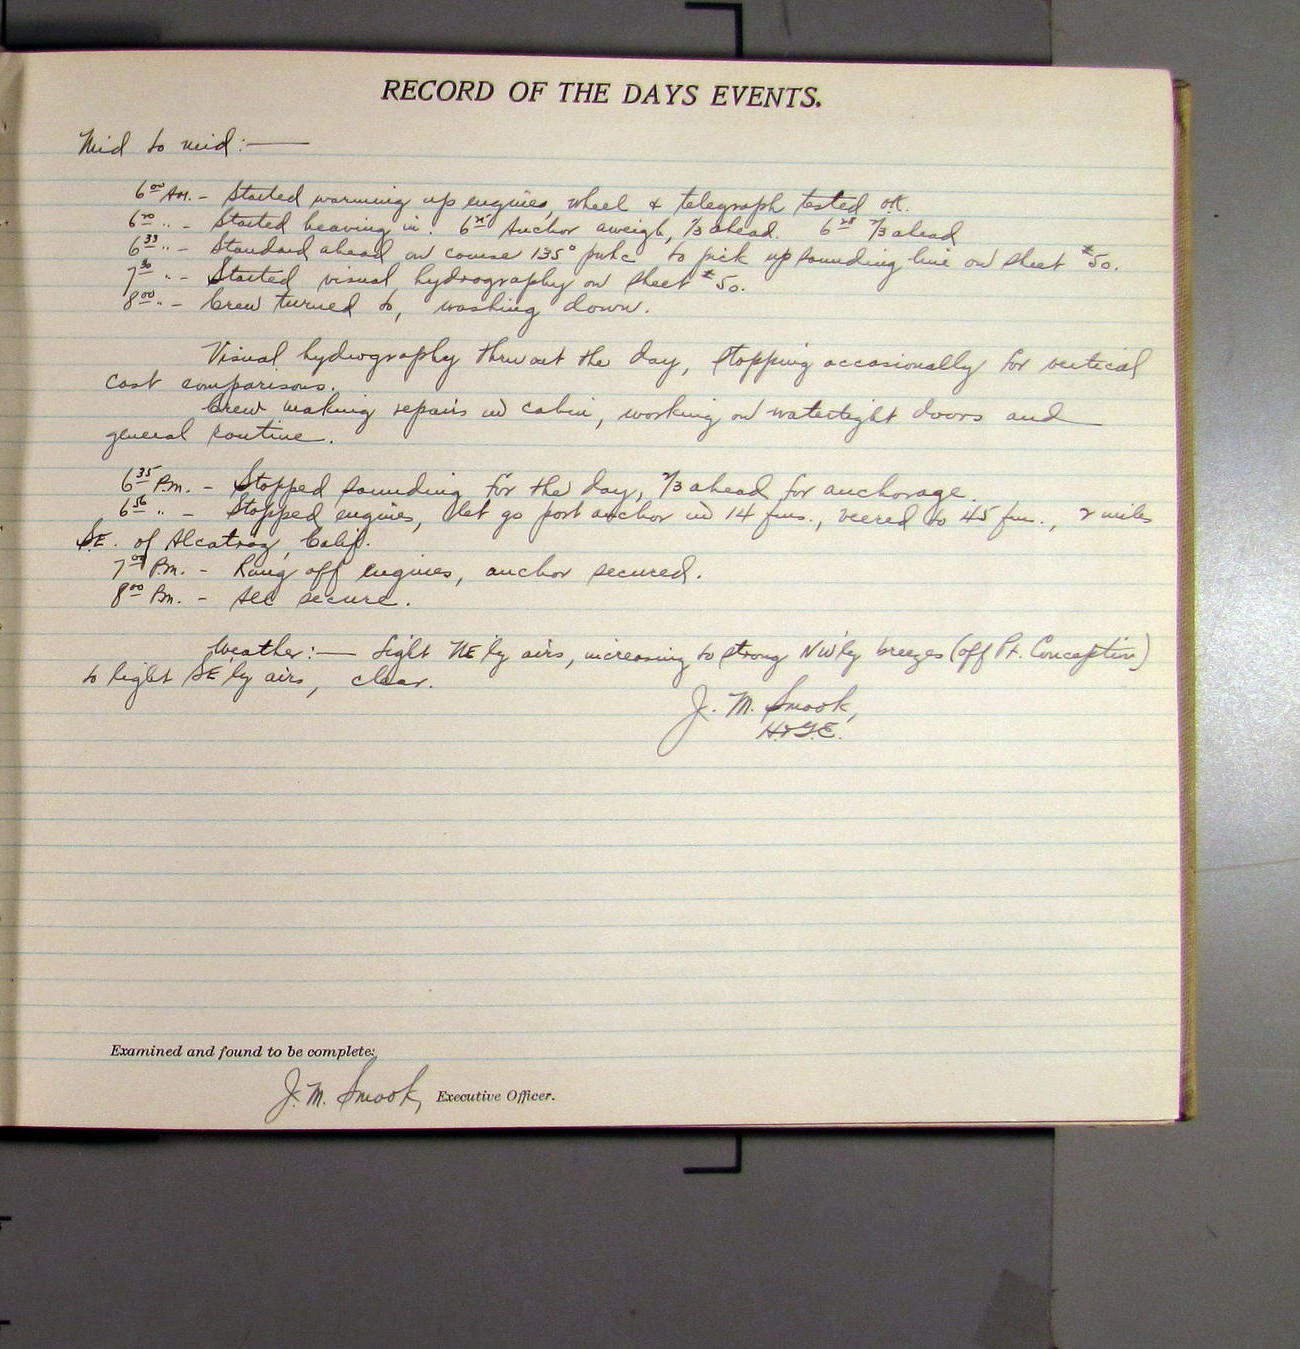 RECORD OF THE DAYS EVENTS.
Mid to mid:—
6 00 AM. - Started warming up engines, wheel & telegraph tested OK.
6 20 " - Started heaving in. 6 25 Anchor aweigh, 1/3 ahead. 6 28 2/3 ahead
6 33 " - Standard ahead on course 135° to pick up sounding line on sheet #50.
7 30 " - Started visual hydrography on sheet #50.
8 00 " - Crew turned to, washing down.
Visual hydrography thru out the day, stopping occasionally for vertical
cast comparisons.
Crew making repairs in cabin, working on watertight doors and
general routine.
6 35 P.m. - Stopped sounding for the day, 2/3 ahead for anchorage.
6 56 " - Stopped engines, let go port anchor in 14 fms., veered to 45 fm., 2 miles
SE. of Alcatraz, Calif.
7 00 Pm. - Rang off engines, anchor secured.
8 00 Pm. - All secure.
Weather:— Light NE'ly airs, increasing to strong NW'ly breezes (off Pt. Conception)
to light SE'ly airs, clear.
J. M. Smook,
H.&G.E.
Examined and found to be complete:
J. M. Smook, Executive Officer.